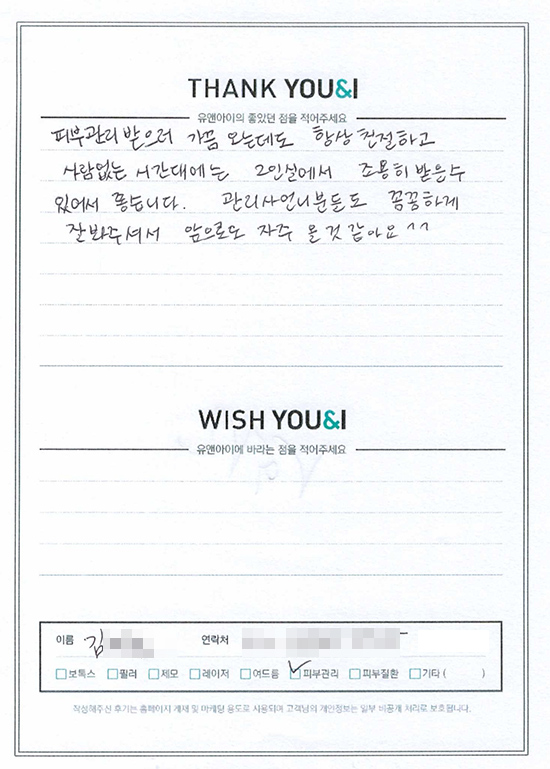 THANK YOU&I
유앤아이의 좋았던 점을 적어주세요
피부관리 받으러 가끔 오는데도 항상 친절하고
사람없는 시간대에는 2인실에서 조용히 받을수
있어서 좋습니다. 관리사언니분들도 꼼꼼하게
잘봐주셔서 앞으로도 자주 올 것 같아요 ^^
WISH YOU&I
유앤아이에 바라는 점을 적어주세요
이름 김 연락처
보톡스 필러 제모 레이저 여드름 피부관리 피부질환 기타 ( )
작성해주신 후기는 홈페이지 게재 및 마케팅 용도로 사용되며 고객님의 개인정보는 일부 비공개 처리로 보호됩니다.